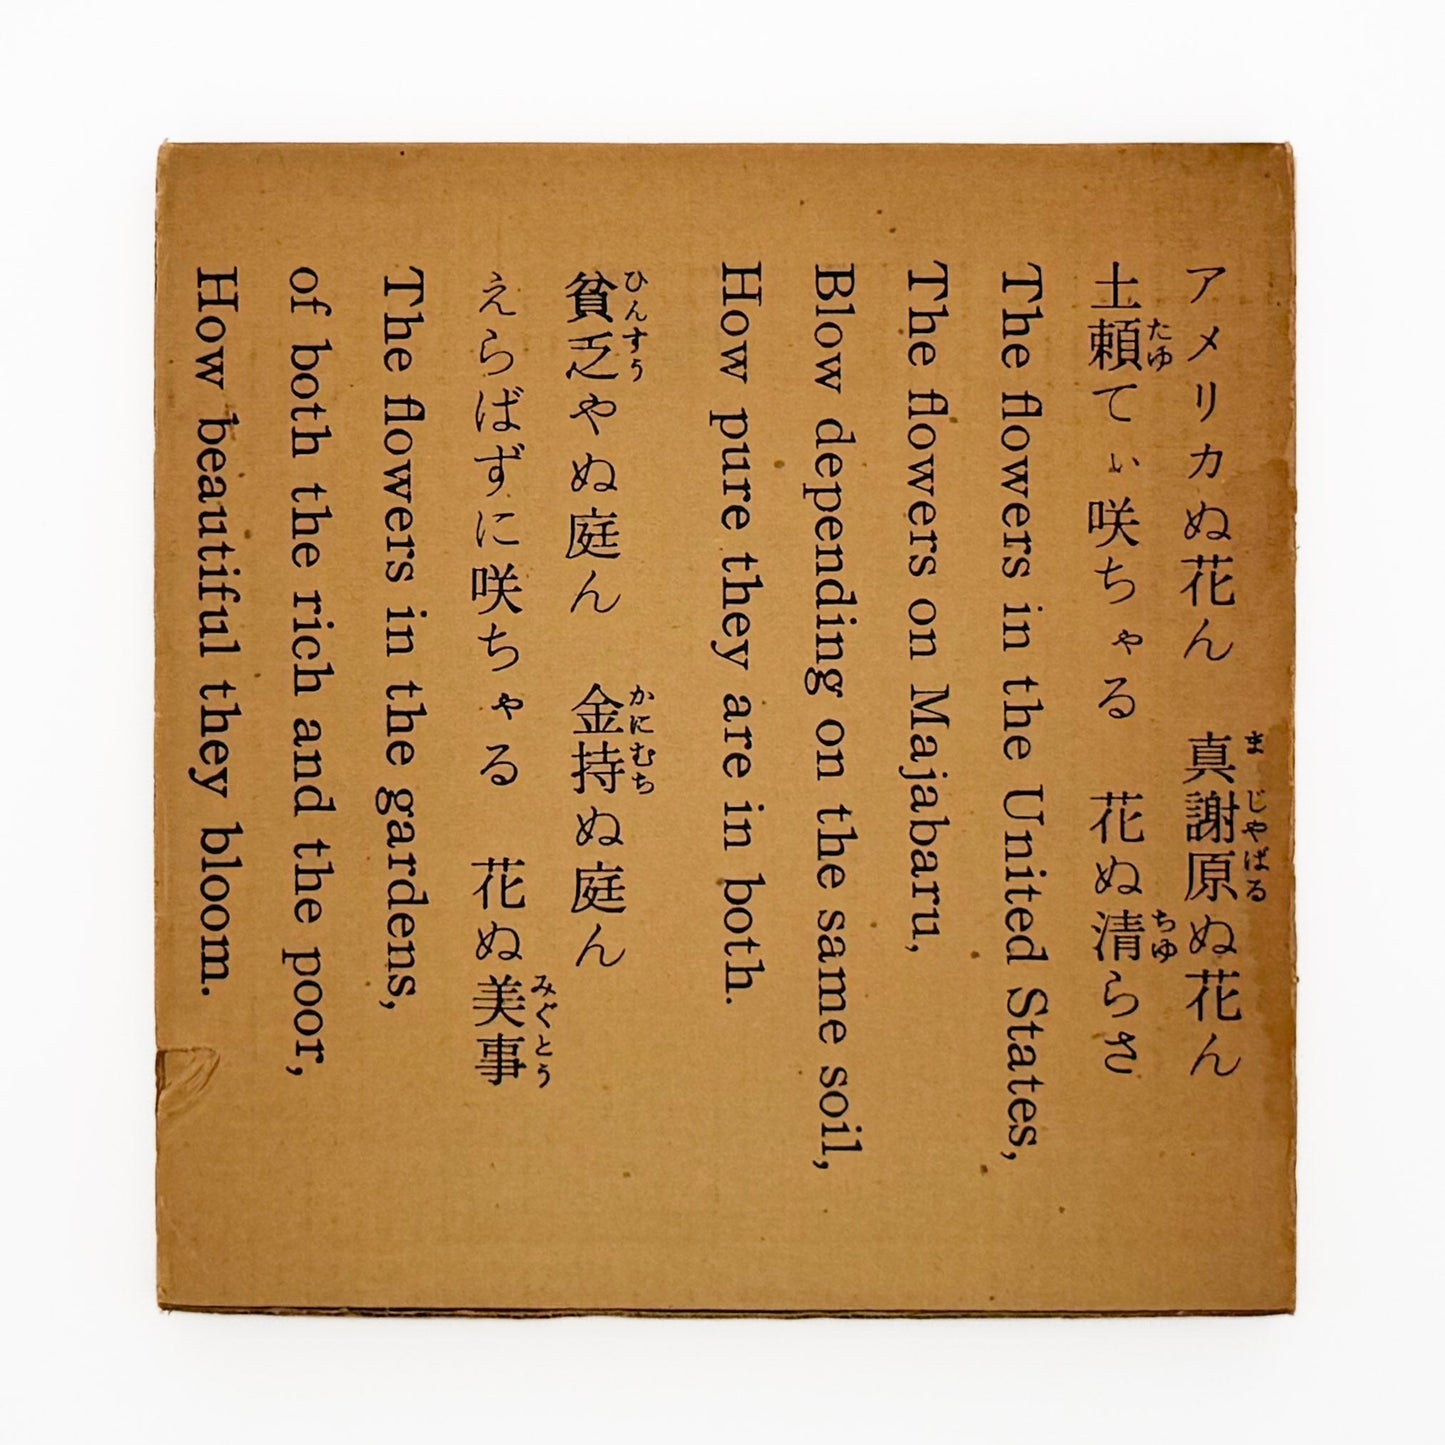 アメリカぬ花ん　真謝原ぬ花ん
ま じゃばる
土頼てぃ咲ちゃる　花ぬ清らさ
たゆ ちゅ
The flowers in the United States,
The flowers on Majabaru,
Blow depending on the same soil,
How pure they are in both.
貧乏やぬ庭ん　金持ぬ庭ん
ひんすう かにむち
えらばずに咲ちゃる　花ぬ美事
みぐとう
The flowers in the gardens,
of both the rich and the poor,
How beautiful they bloom.